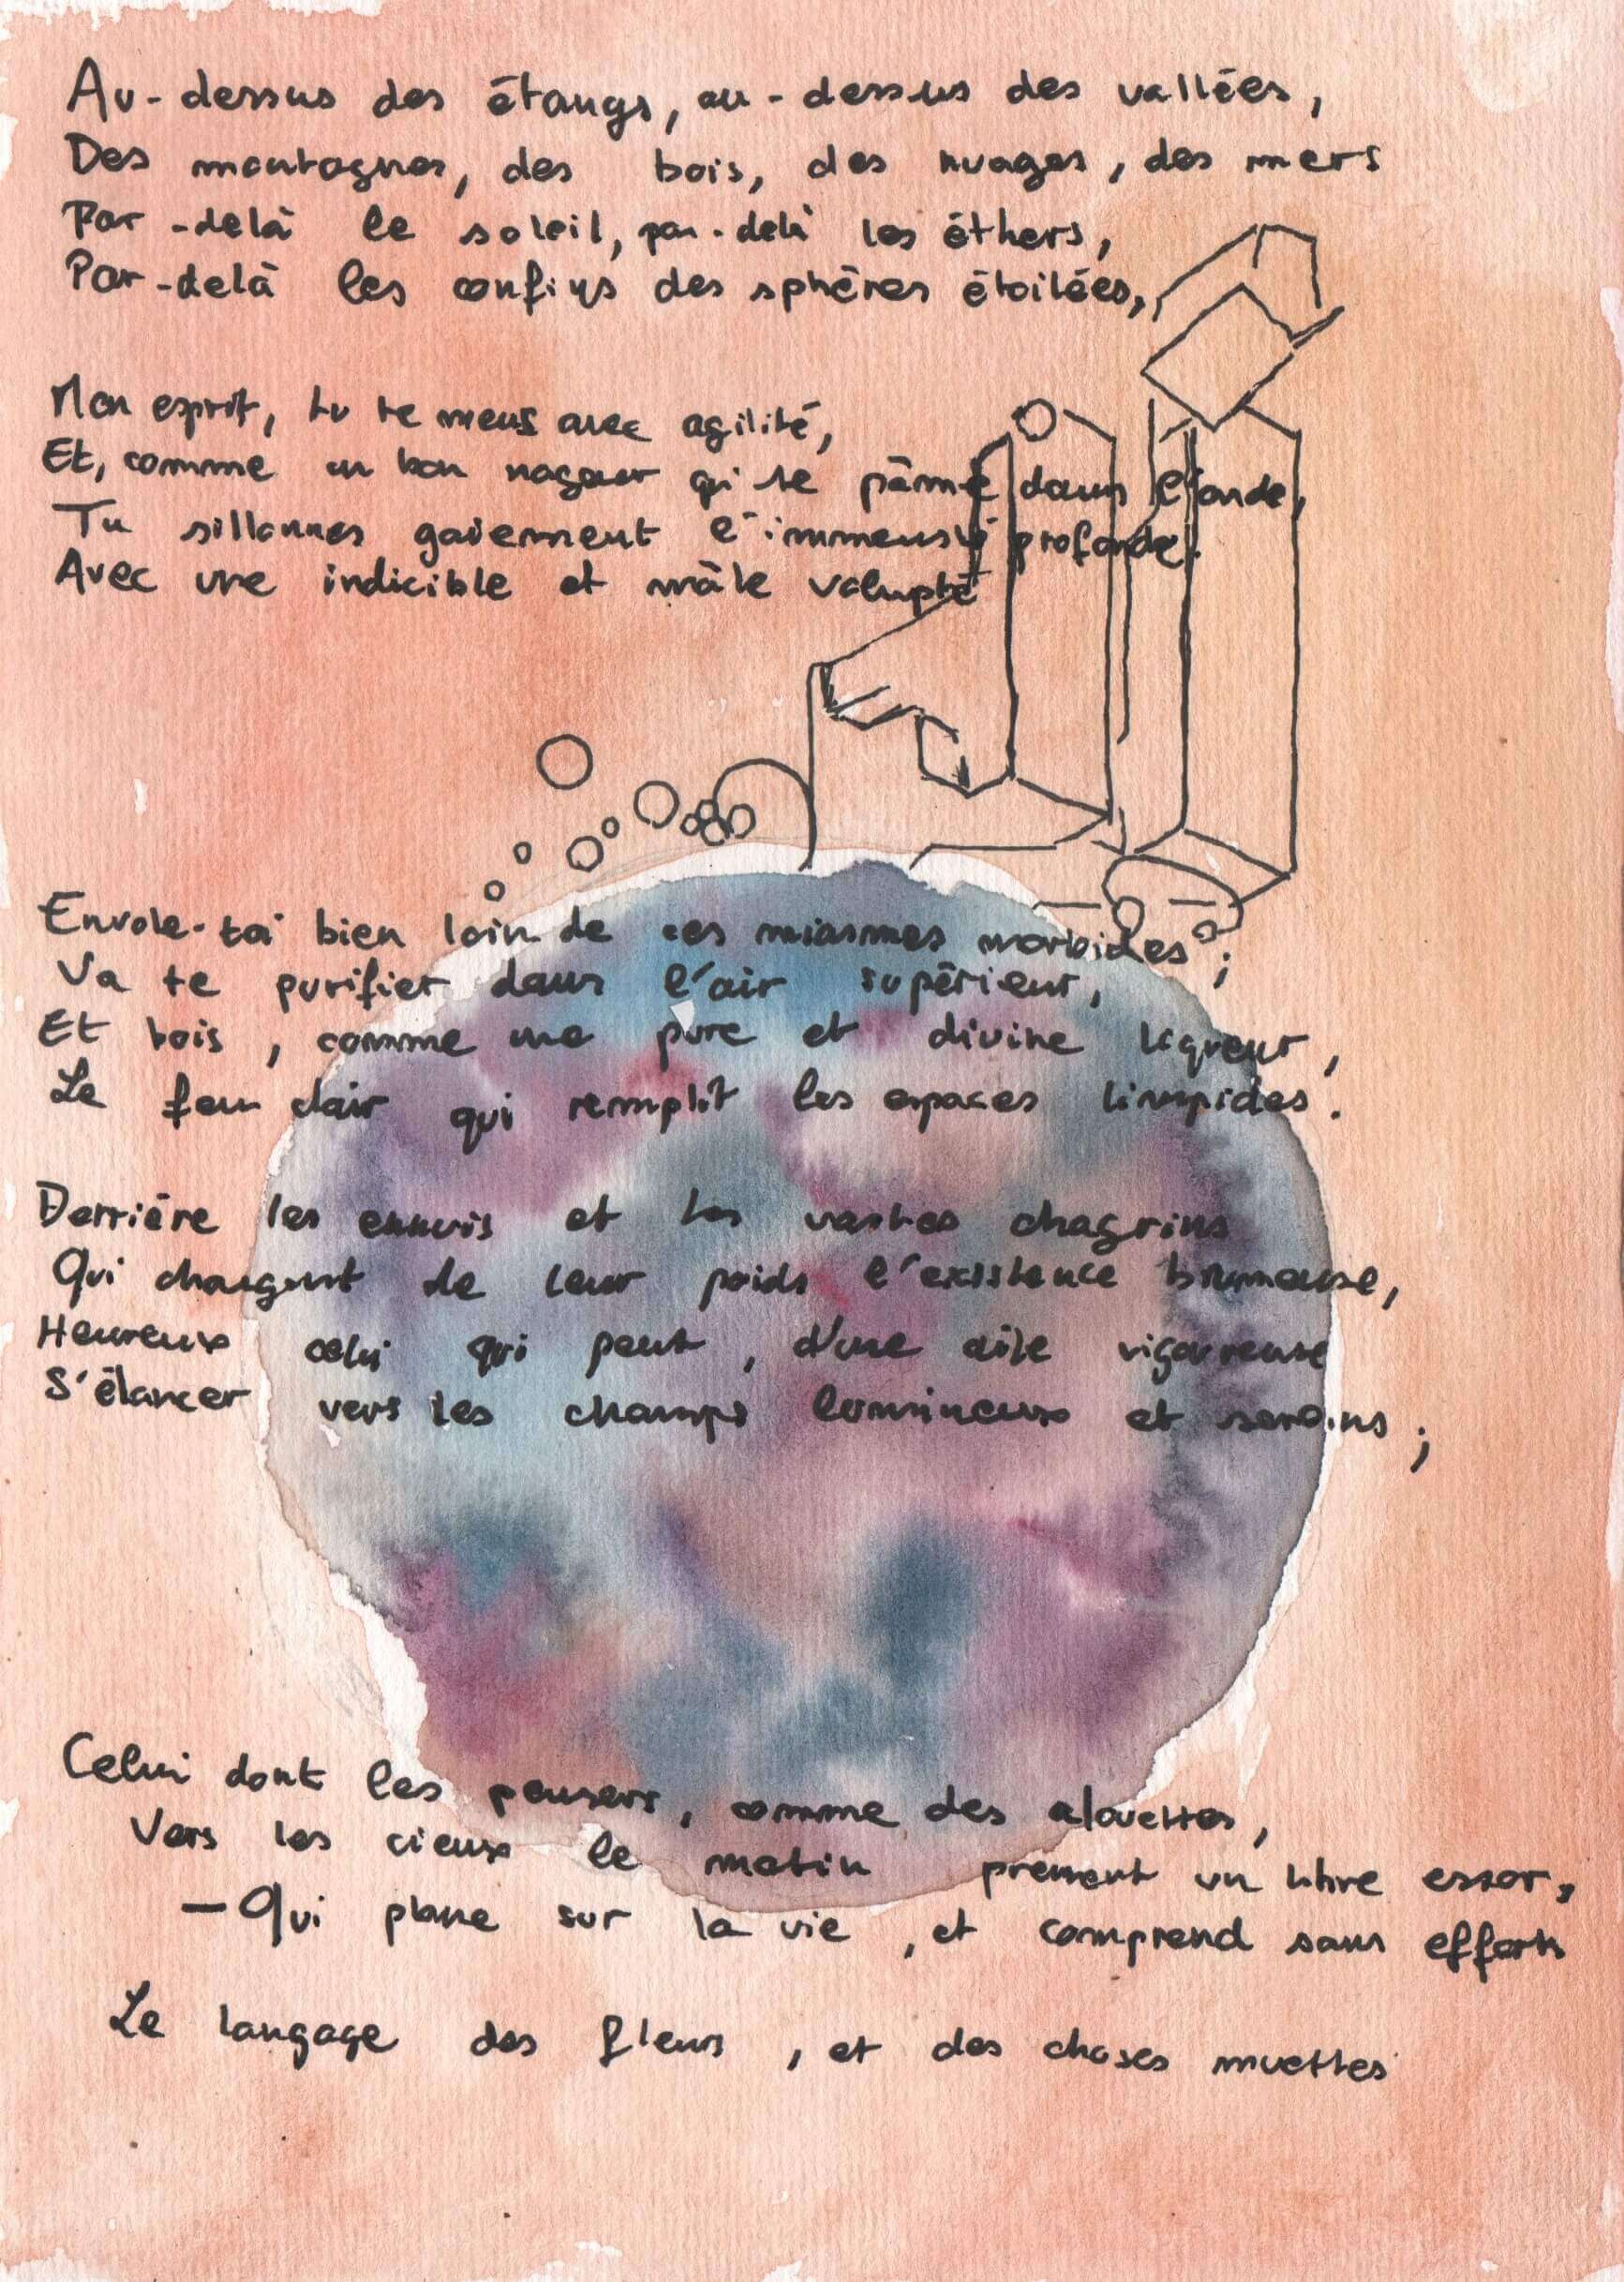 Au-dessus des étangs, au-dessus des vallées,
Des montagnes, des bois, des nuages, des mers
Par-delà le soleil, par-delà les éthers,
Par-delà les confins des sphères étoilées,
Mon esprit, tu te meus avec agilité,
Et, comme un bon nageur qui se pâme dans l'onde,
Tu sillonnes gaiement l'immensité profonde.
Avec une indicible et mâle volupté
Envole-toi bien loin de ces miasmes morbides ;
Va te purifier dans l'air supérieur,
Et bois, comme une pure et divine liqueur,
Le feu clair qui remplit les espaces limpides.
Derrière les ennuis et les vastes chagrins
Qui chargent de leur poids l'existence brumeuse,
Heureux celui qui peut, d'une aile vigoureuse
S'élancer vers les champs lumineux et sereins ;
Celui dont les pensers, comme des alouettes,
Vers les cieux le matin prennent un libre essor,
— Qui plane sur la vie, et comprend sans efforts
Le langage des fleurs, et des choses muettes